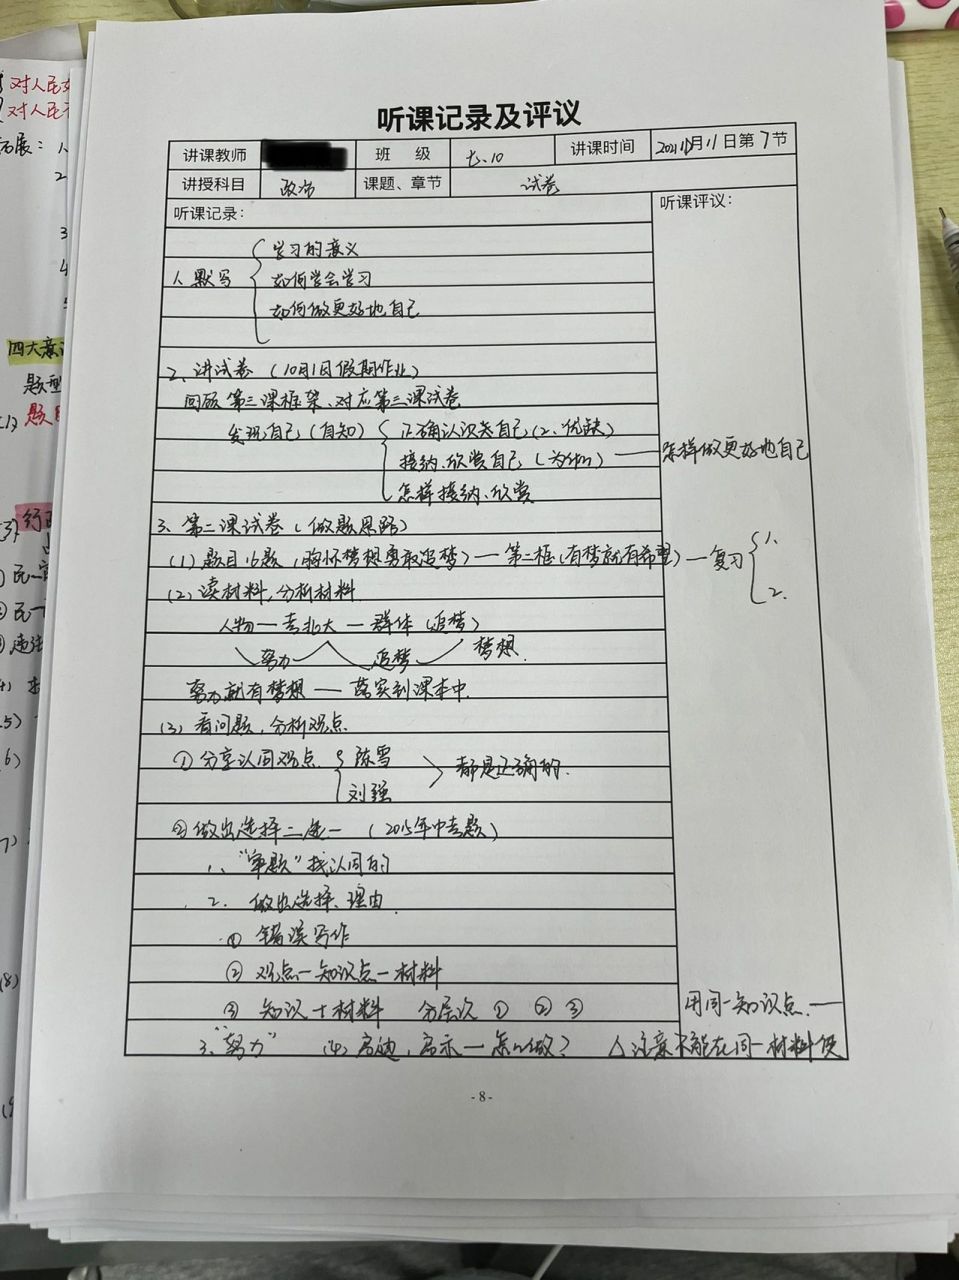 对人民
对人民
拓展：1.
2.
3
4
四大意
题型
题
听课记录及评议
讲课教师 班 级 七、10 讲课时间 2021年10月11日第7节
讲授科目 政治 课题、章节 试卷
听课记录： 听课评议：
1、默写 学习的意义
如何学会学习
如何做更好地自己
2、讲试卷（10月1日假期作业）
回顾第三课框架、对应第三课试卷
发现自己（自知） 正确认识类自己（2、优缺）
接纳、欣赏自己（为何） — 怎样做更好地自己
怎样接纳、欣赏
3、第二课试卷（做题思路）
（1）题目16题，（胸怀梦想勇敢追梦）— 第二框（有梦就有希望）— 复习 1.
2.
（2）读材料，分析材料
人物 — 考北大 — 群体（追梦）
努力 追梦 梦想
努力就有梦想 — 落实到课本中.
（3）看问题，分析观点
① 分享认同观点 陈雪
刘强 都是正确的.
② 做出选择二选一（2015年中考题）
1、“审题”找认同的
2. 做出选择、理由
① 错误写作
② 观点—知识点—材料
③ 知识+材料 分层次 ① ② ③ 用同一知识点.—
3、“努力” （4）启迪，启示—怎么做？ △注意不能在同一材料使
- 8 -